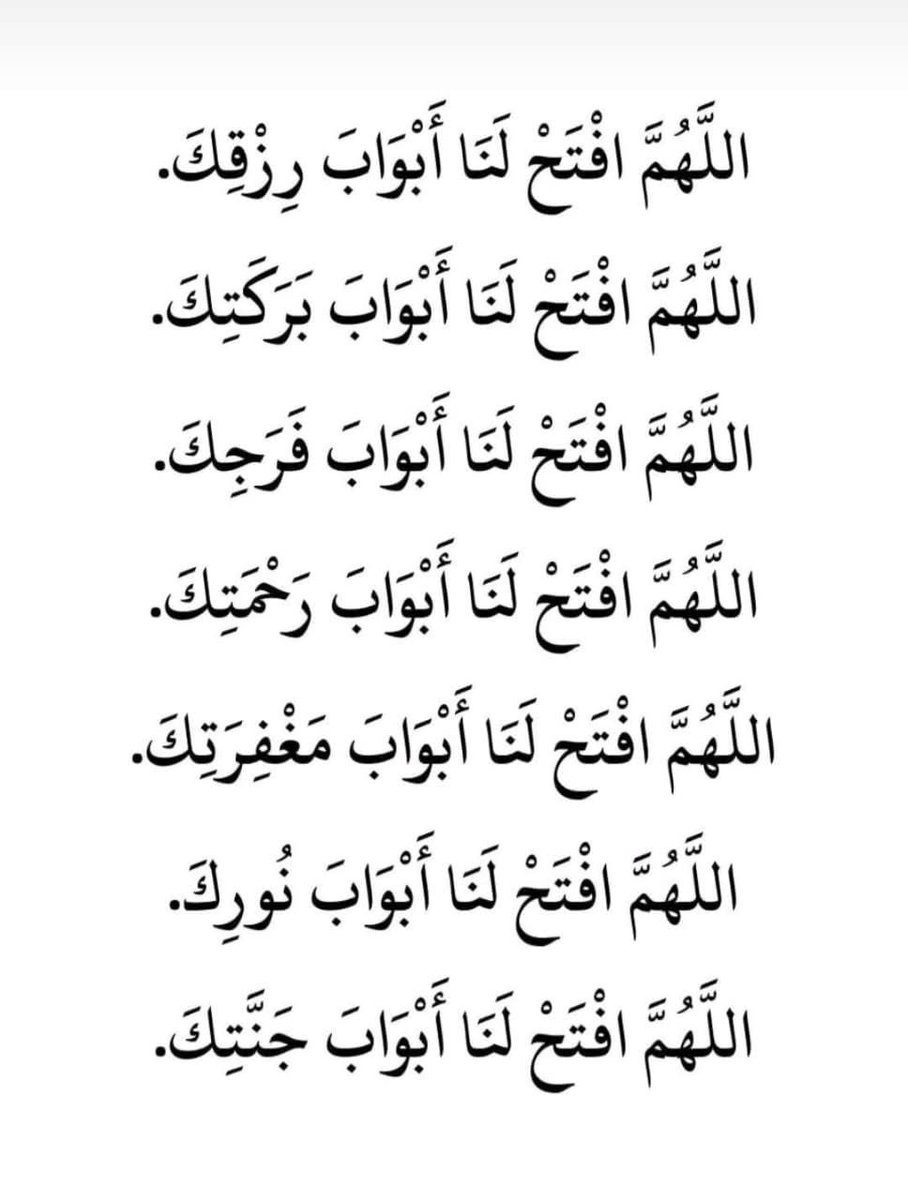 اللَّهُمَّ افْتَحْ لَنَا أَبْوَابَ رِزْقِكَ.
اللَّهُمَّ افْتَحْ لَنَا أَبْوَابَ بَرَكَتِكَ.
اللَّهُمَّ افْتَحْ لَنَا أَبْوَابَ فَرَجِكَ.
اللَّهُمَّ افْتَحْ لَنَا أَبْوَابَ رَحْمَتِكَ.
اللَّهُمَّ افْتَحْ لَنَا أَبْوَابَ مَغْفِرَتِكَ.
اللَّهُمَّ افْتَحْ لَنَا أَبْوَابَ نُورِكَ.
اللَّهُمَّ افْتَحْ لَنَا أَبْوَابَ جَنَّتِكَ.